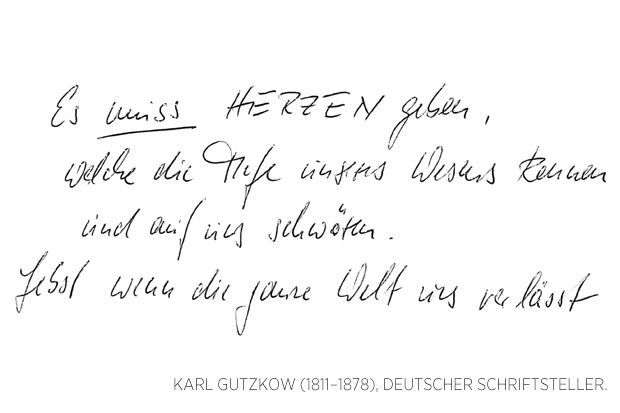 Es muss HERZEN geben,
welche die Tiefe unseres Wesens kennen
und auf uns schwören.
Selbst wenn die ganze Welt uns verlässt
KARL GUTZKOW (1811–1878), DEUTSCHER SCHRIFTSTELLER.